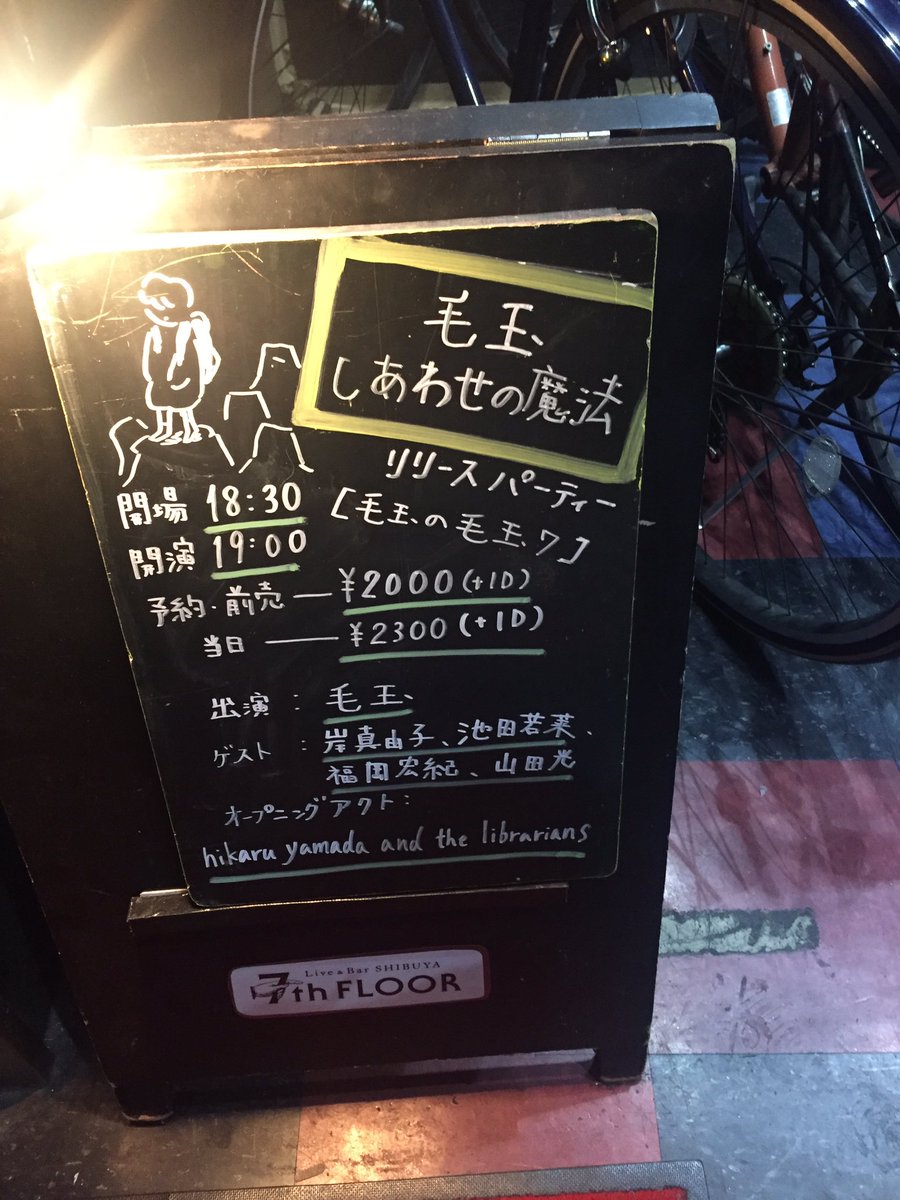 毛玉、
しあわせの魔法
リリースパーティー
[毛玉の毛玉、7]
開場 18:30
開演 19:00
予約・前売 — ¥2000(+1D)
当日 — ¥2300(+1D)
出演 : 毛玉、
ゲスト : 岸真由子、池田若菜、
福岡宏紀、山田光
オープニングアクト:
hikaru yamada and the librarians
Live & Bar SHIBUYA
7th FLOOR